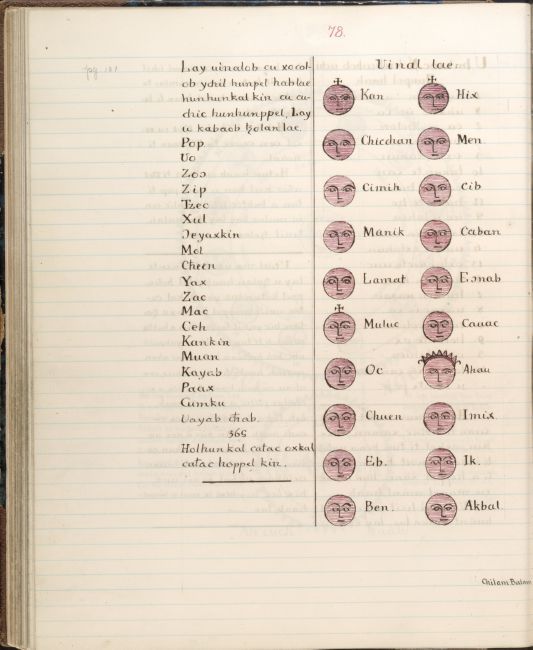 78.
pg 181
Lay uinalob cu xocol-
ob ychil hunpel hab lae
hunhunkal kin cu cu-
chic hunhunppel, Lay
u kabaob tzolan lae.
Pop
Uo
Zoɔ
Zip
Tzec
Xul
Ɔeyaxkin
Mol
Cheen
Yax
Zac
Mac
Ceh
Kankin
Muan
Kayab
Paax
Cumku
Uayab chab.
365
Holhunkal catac oxkal
catac hoppel kin.
Uinal lae
Kan
Chicchan
Cimih
Manik
Lamat
Muluc
Oc
Chuen
Eb.
Ben
Hix
Men
Cib
Caban
Eɔnab
Cauac
Ahau
Imix
Ik.
Akbal
Chilam Balam